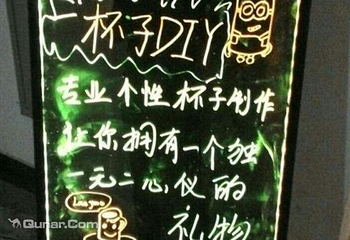 杯子DIY
专业个性杯子制作
让你拥有一个独
一元二心仪的
礼物
Love you
Qunar.Com